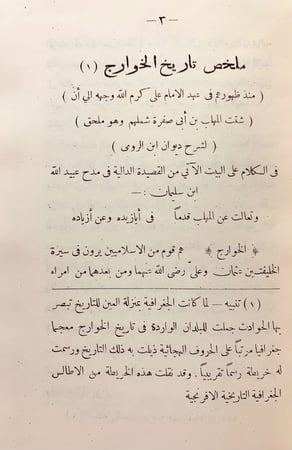 — ٣ —
ملخص تاريخ الخوارج (١)
( منذ ظهورهم فى عهد الامام على كرم الله وجهه الى أن )
( شتت المهلب بن أبى صفرة شملهم وهو ملحق )
( لشرح ديوان ابن الرومى )
فى الكلام على البيت الآتي من القصيدة الدالية فى مدح عبيد الله
ابن سليمان : —
وتعالت عن المهلب قدماً فى أيازيده وعن أزياده
﴿ الخوارج ﴾ هم قوم من الاسلاميين يرون فى سيرة
الخليفتين عثمان وعلىّ رضى الله عنهما ومن بعدهما من امراء
(١) تنبيه – لما كانت الجغرافية بمنزلة العين للتاريخ تبصر
بها الحوادث جعلت للبلدان الواردة فى تاريخ الخوارج معجما
جغرافيا مرتباً على الحروف الهجائية ذيلت به ذلك التاريخ ورسمت
له خريطة رسماً تقريبياً . وقد نقلت هذه الخريطة من الاطالس
الجغرافية التاريخية الافرنجية